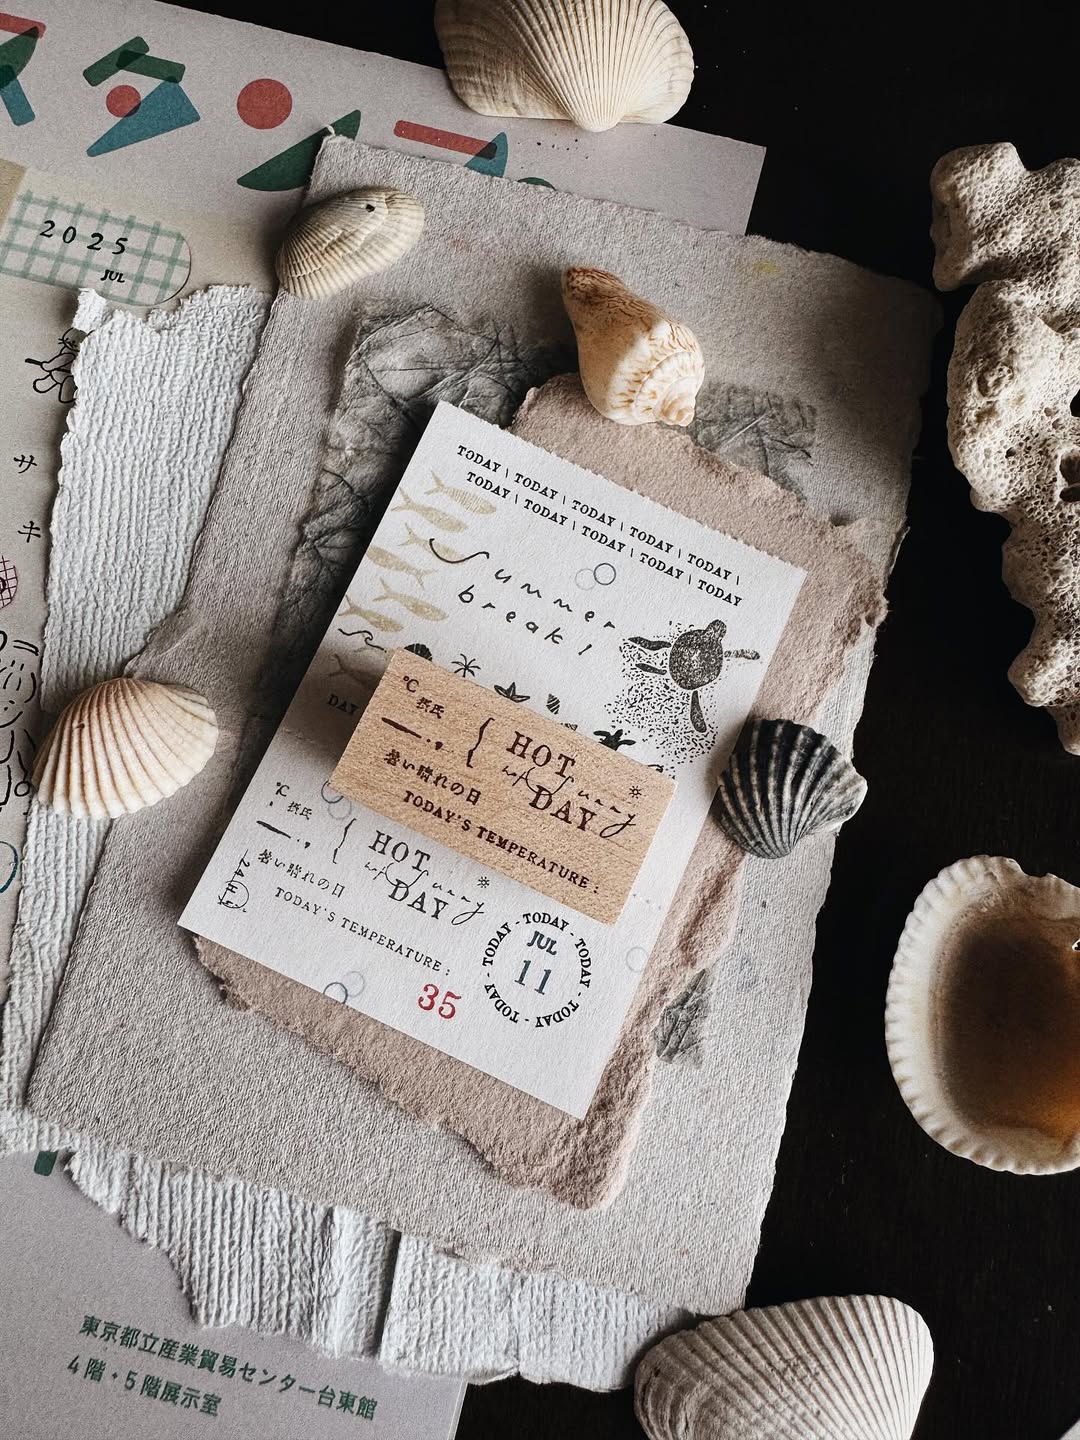 スタンプ
2025
JUL
サ
キ
TODAY \ TODAY \ TODAY \ TODAY \ TODAY \
TODAY \ TODAY \ TODAY \ TODAY \ TODAY
summer
break!
DAY
℃ 摂氏
HOT
DAY
sunny
暑い晴れの日
TODAY'S TEMPERATURE:
℃ 摂氏
HOT
DAY
sunny
暑い晴れの日
TODAY'S TEMPERATURE:
35
TODAY - TODAY - TODAY - TODAY - TODAY - TODAY -
JUL
11
東京都立産業貿易センター台東館
4階・5階展示室